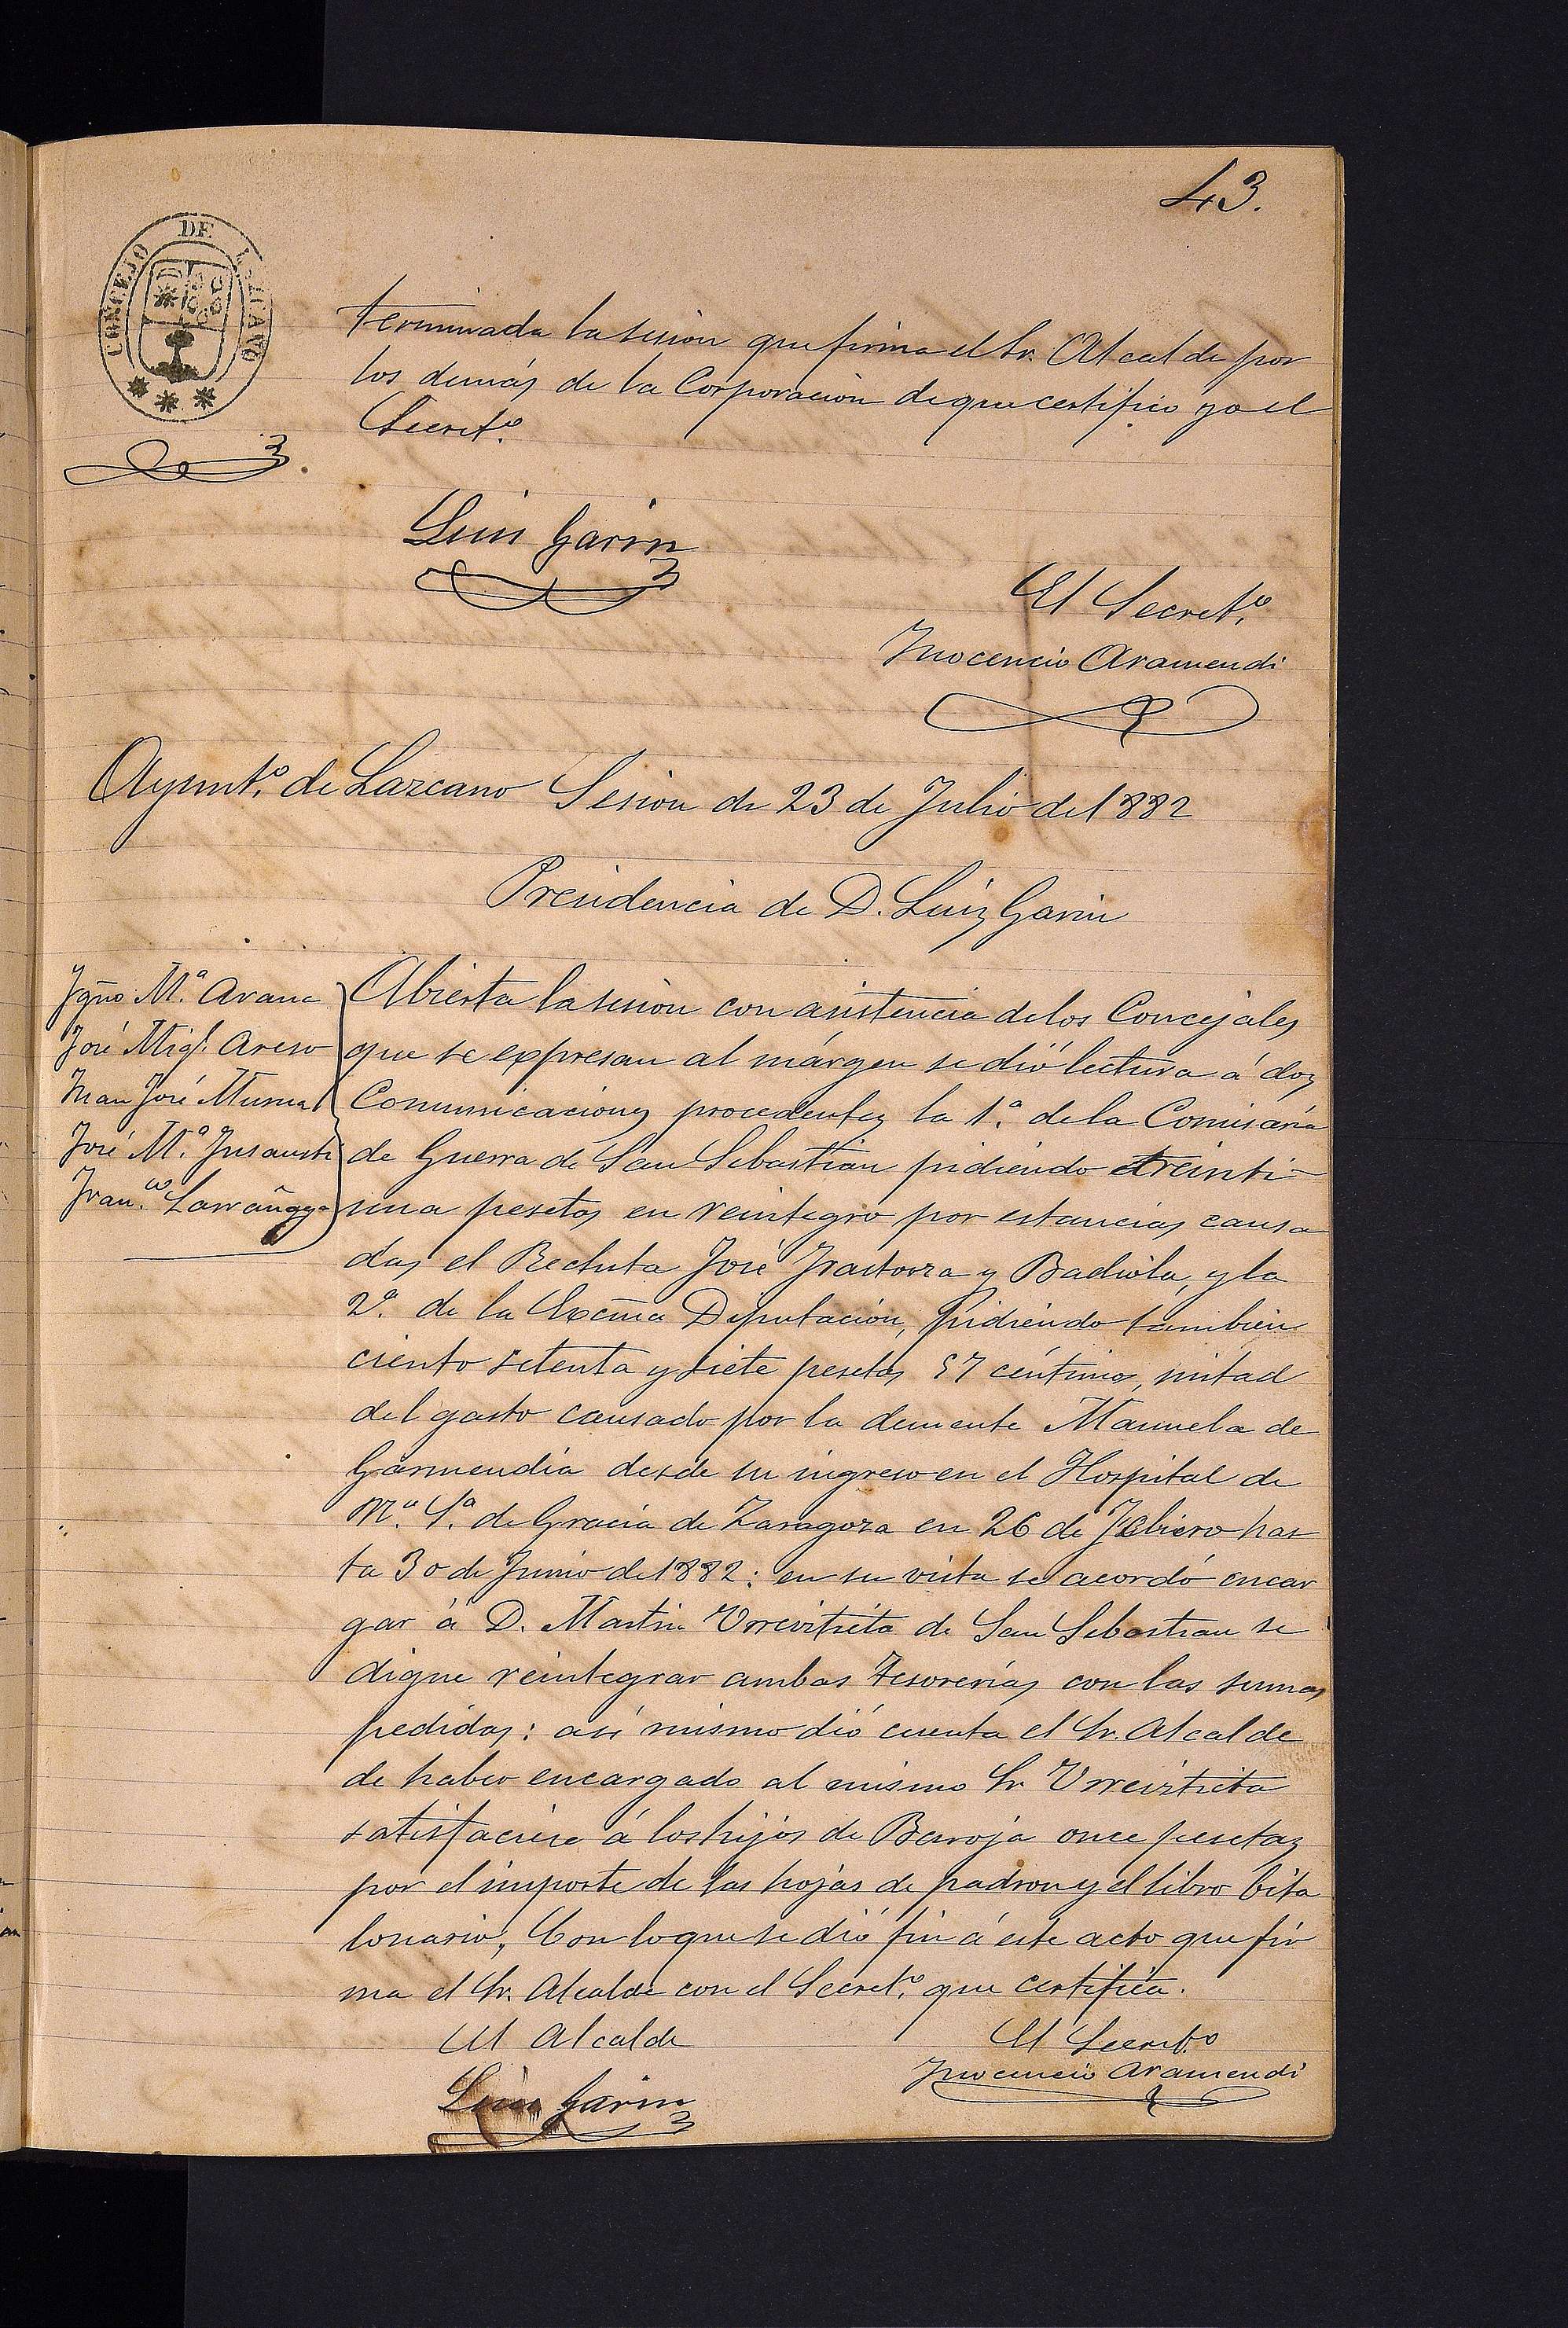 43.
CONCEJO DE LAZCANO
terminada la sesion que firma el Sr. Alcalde por
los demás de la Corporacion de que certifico yo el
Secret.º
Luis Garin
El Secret.º
Inocencio Aramendi
Ayunt.º de Lazcano Sesion de 23 de Julio de 1882
Presidencia de D. Luis Garin
Ygño. M.ª Arana
José Migl. Areso
Juan José Munua
José M.ª Insausti
Fran.co Larrañaga
Abierta la sesion con asistencia de los Concejales
que se expresan al márgen se dió lectura á dos
Comunicaciones procedentes la 1.ª de la Comisaría
de Guerra de San Sebastian pidiendo treinti-
una pesetas en reintegro por estancias causa
das el Recluta José Irastorza y Badiola, y la
2.ª de la Excma Diputación, pidiendo tambien
ciento setenta y siete pesetas 57 céntimos, mitad
del gasto causado por la demente Manuela de
Garmendia desde su ingreso en el Hospital de
N.ª S.ª de Gracia de Zaragoza en 26 de Febrero has
ta 30 de Junio de 1882: en su vista se acordó encar
gar á D. Martin Urreiztieta de San Sebastian se
digne reintegrar ambas Tesorerías con las sumas
pedidas: asi mismo dió cuenta el Sr. Alcalde
de haber encargado al mismo Sr Urreiztieta
satisfaciese á los hijos de Baroja once pesetas
por el importe de las hojas de padron y el libro bita
lonario, Con lo que se dió fin á este acto que fir
ma el Sr. Alcalde con el Secret.º que certifica.
El Alcalde
El Secret.º
Luis Garin
Inocencio Aramendi